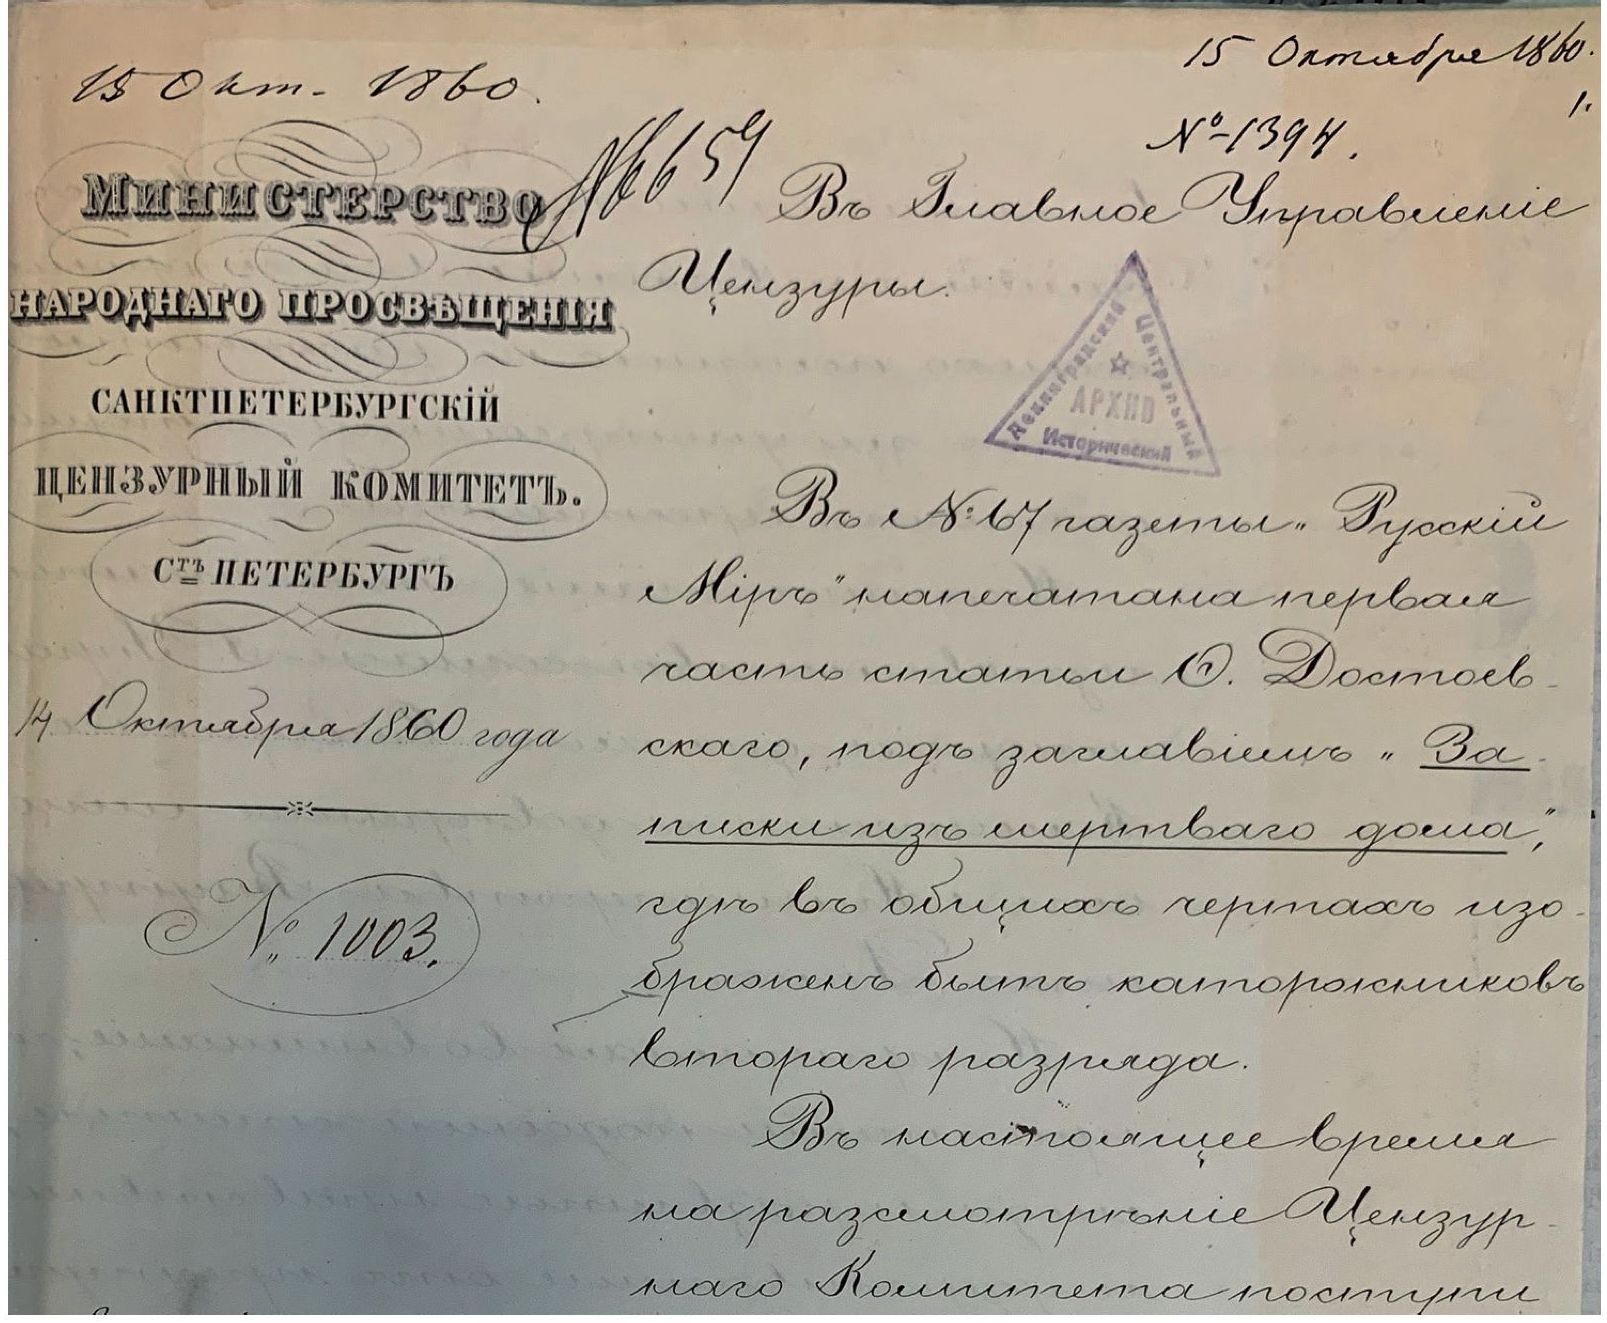 15 Окт. 1860.
15 Октября 1860.
1.
№ 1394.
№ 659
МИНИСТЕРСТВО
НАРОДНАГО ПРОСВѢЩЕНІЯ
САНКТПЕТЕРБУРГСКІЙ
ЦЕНЗУРНЫЙ КОМИТЕТЪ.
СТЪ ПЕТЕРБУРГЪ
14 Октября 1860 года
№ 1003.
Въ Главное Управленіе
Цензуры.
Ленинградский
Центральный
Исторический
АРХИВ
Въ № 67 газеты „Русскій
Міръ" напечатана первая
часть статьи Ѳ. Достоев-
скаго, подъ заглавіемъ „За-
писки изъ мертваго дома",
гдѣ въ общихъ чертахъ изо-
браженъ бытъ каторжниковъ
втораго разряда.
Въ настоящее время
на разсмотрѣніе Цензур-
наго Комитета поступи